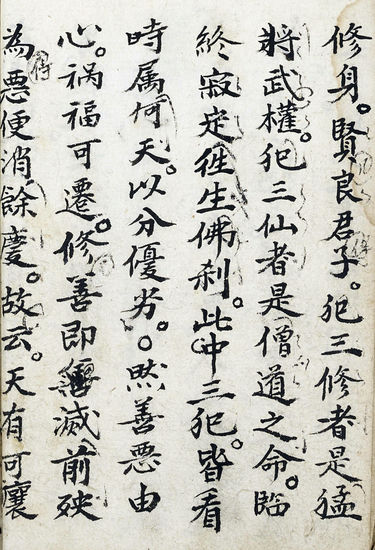 修身。賢良君子。犯三修者是猛
將武權。犯三仙者是僧道之命。臨
終寂定徃生佛刹。此中三犯。皆看
時属何天。以分優劣。。然善悪由
心。禍福可遷。修善即滅前殃
為悪便消餘慶。故云。天有可禳